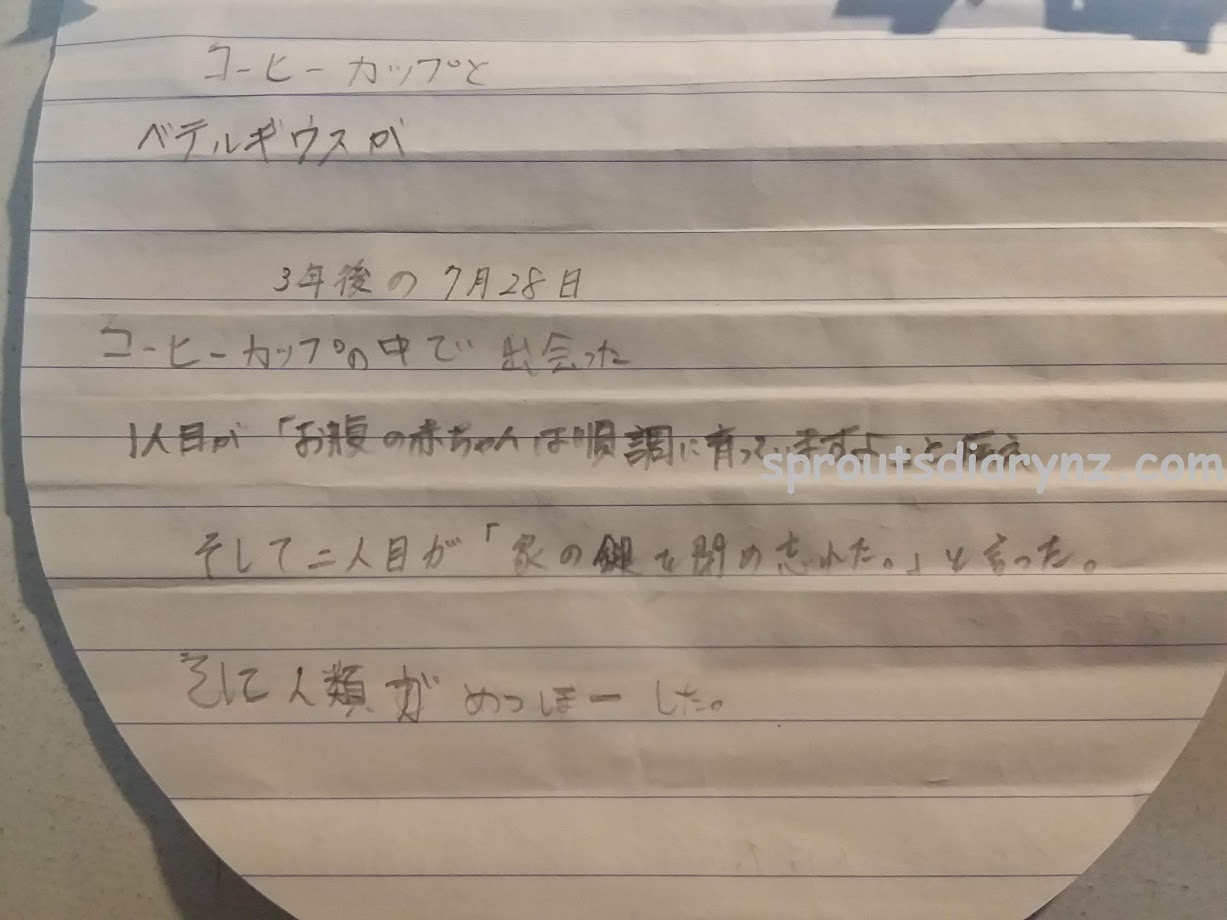 コーヒーカップと
ベテルギウスが
3年後の7月28日
コーヒーカップの中で出会った
1人目が「お腹の赤ちゃんは順調に育っていますよ」と
sproutsdiarynz.com
そして二人目が「家の鍵を閉め忘れた。」と言った。
そして人類がめつぼーした。